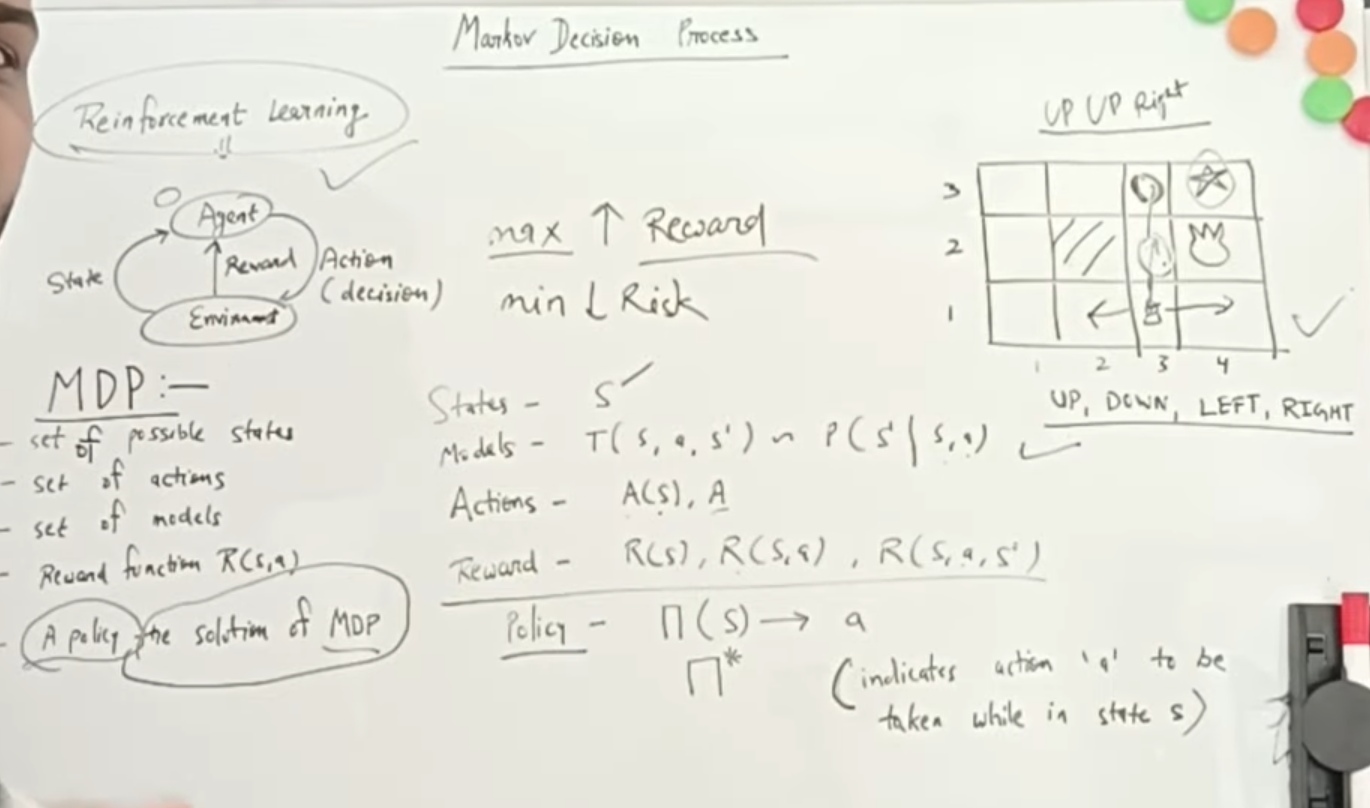 Markov Decision Process
Reinforcement Learning
Agent
State
Reward
Action
(decision)
max ↑ Reward
min ↓ Risk
UP UP Right
3
2
1
1 2 3 4
UP, DOWN, LEFT, RIGHT
MDP:-
- set of possible states
- set of actions
- set of models
- Reward function R(s,a)
- A policy the solution of MDP
States - S
Models - T(s, a, s') ~ P(s' | s, a)
Actions - A(s), A
Reward - R(s), R(s,a), R(s,a,s')
Policy - Π(s) → a
Π*
(indicates action 'a' to be
taken while in state s)